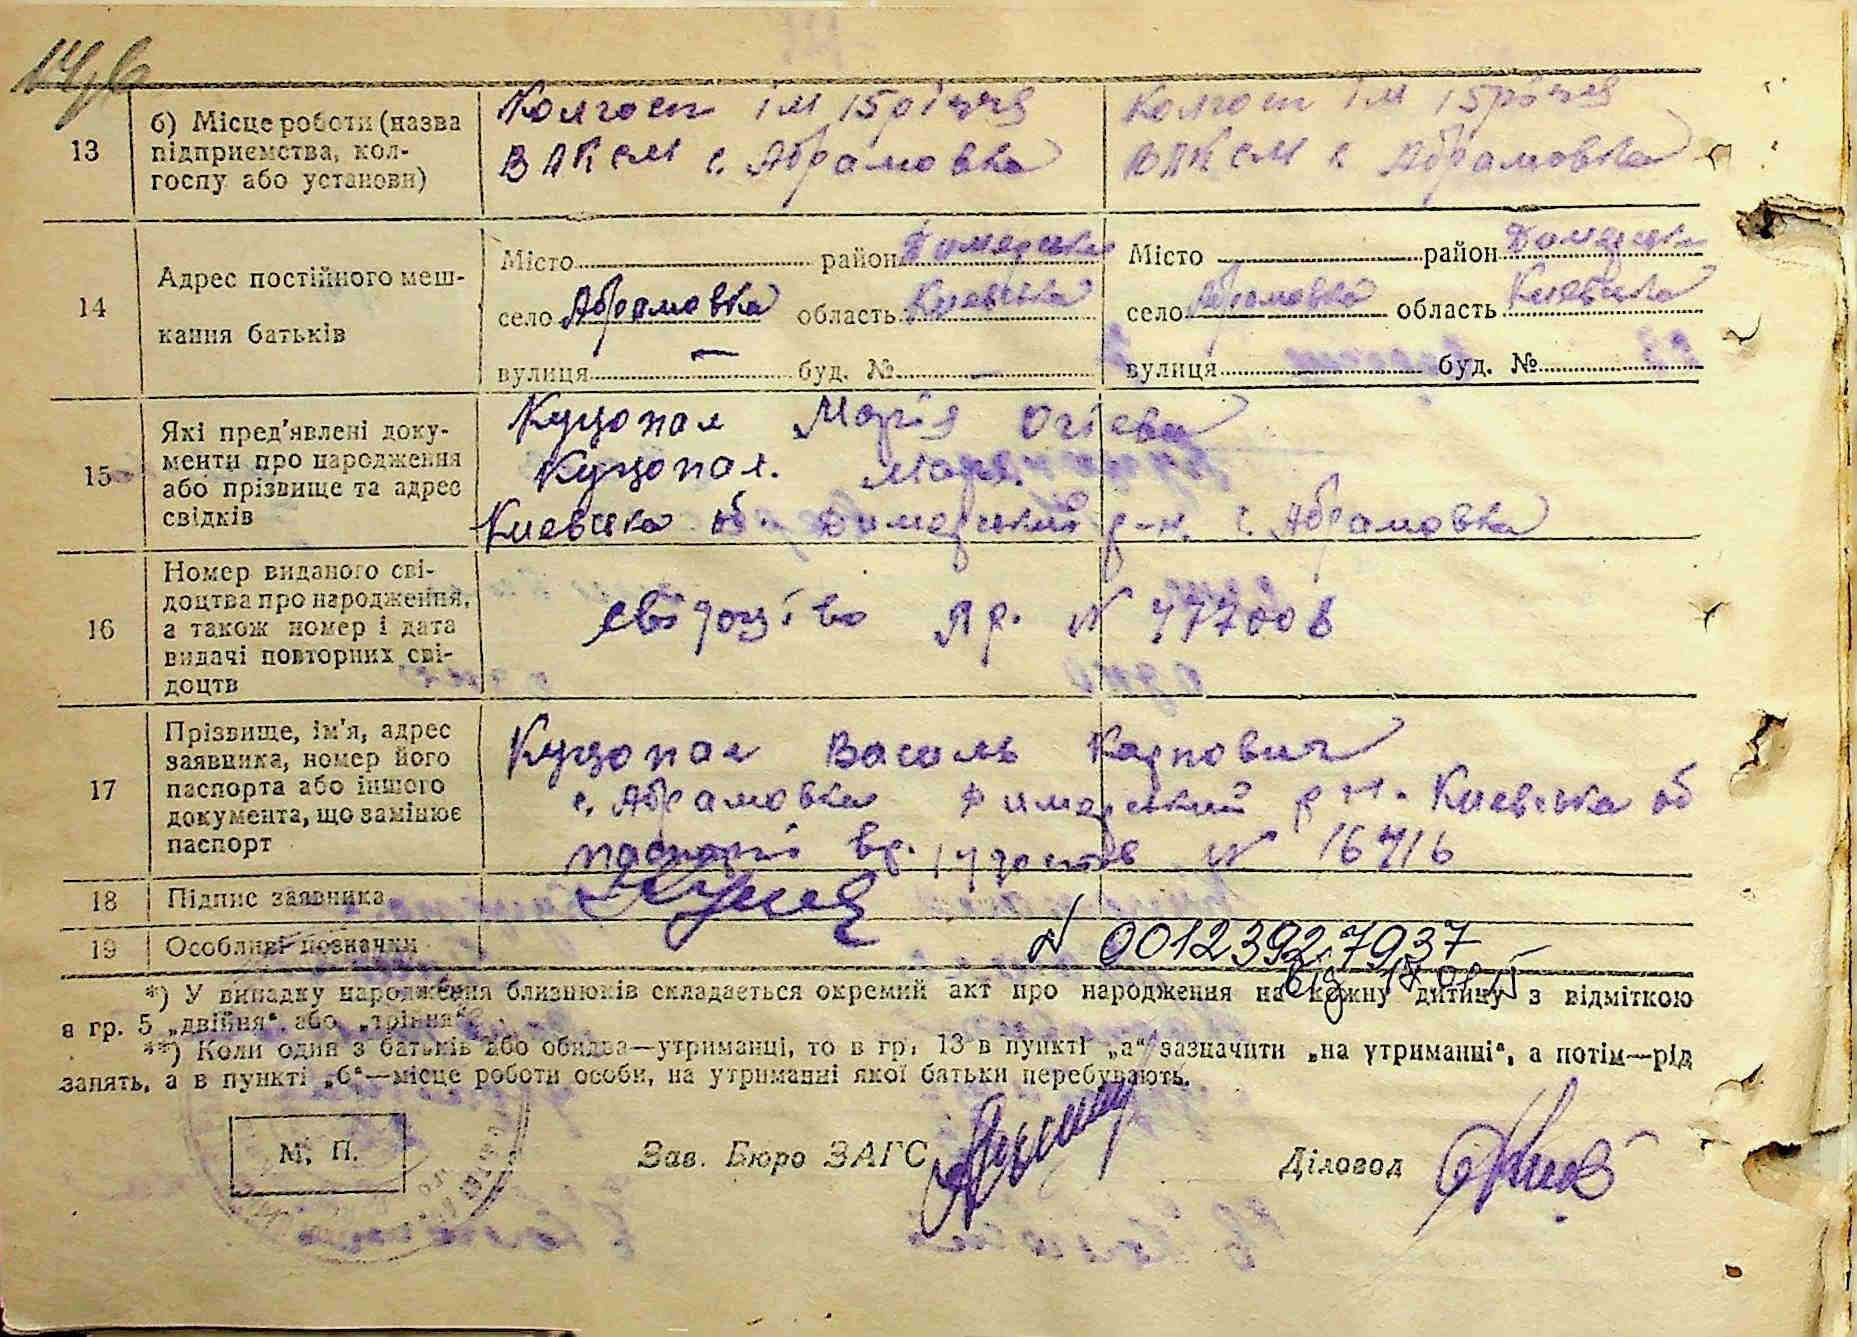 13 б) Місце роботи (назва підприємства, кол-госпу або установи)
Колгосп ім 15річчя Колгосп ім 15річчя
ВЛКСМ с. Абрамовка ВЛКСМ с. Абрамовка
14 Адрес постійного меш-
кання батьків
Місто район Димерська Місто район Димерська
село Абрамовка область Киевська село Абрамовка область Киевська
вулиця — буд. № — вулиця буд. №
15 Які пред'явлені доку-
менти про народження
або прізвище та адрес
свідків
Куцопал Марія
Куцопал.
Киевська об. Димерський р-н. с. Абрамовка
16 Номер виданого сві-
доцтва про народження,
а також номер і дата
видачі повторних сві-
доцтв
свідоцтво № 477006
17 Прізвище, ім'я, адрес
заявника, номер його
паспорта або іншого
документа, що замінює
паспорт
Куцопал Василь Карпович
с. Абрамовка Димерський р н. Киевська об
№ 16716
18 Підпис заявника
19 Особливі позначки № 00123927937
від
*) У випадку народження близнюків складається окремий акт про народження на кожну дитину з відміткою
в гр. 5 „двійня“ або „трійня“.
**) Коли один з батьків або обидва—утриманці, то в гр. 13 в пункті „а“ зазначити „на утриманні“, а потім—рід
занять, а в пункті „б“—місце роботи особи, на утриманні якої батьки перебувають.
М. П. Зав. Бюро ЗАГС Діловод